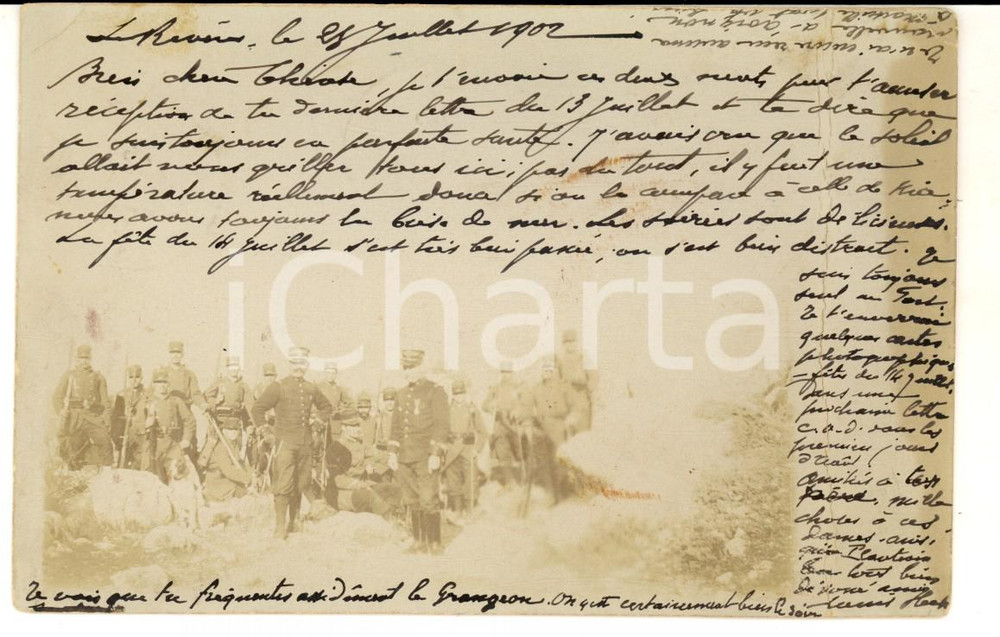 le 25 Juillet 1902
Bien cher, je t'envoie ces deux mots pour t'accuser
réception de ta dernière lettre du 13 Juillet et te dire que
je suis toujours en parfaite santé. J'avais cru que le soleil
allait nous griller tous ici; pas du tout, il y fait une
température réellement douce si on la compare à celle de
nous avons toujours la brise de mer. Les soirées sont délicieuses.
La fête du 14 Juillet s'est très bien passée, on s'est bien distrait. Je
suis toujours
seul au Fort.
Je t'enverrai
quelques cartes
photographiques
fêtes du 14 Juillet.
Dans une
prochaine lettre
c.a.d. dans les
premiers jours
d'août.
amitiés à
mille
choses à ces
dames ainsi
tout bien
Je vois que tu fréquentes assidûment le Grangeon. On y est certainement bien le soir
iCharta